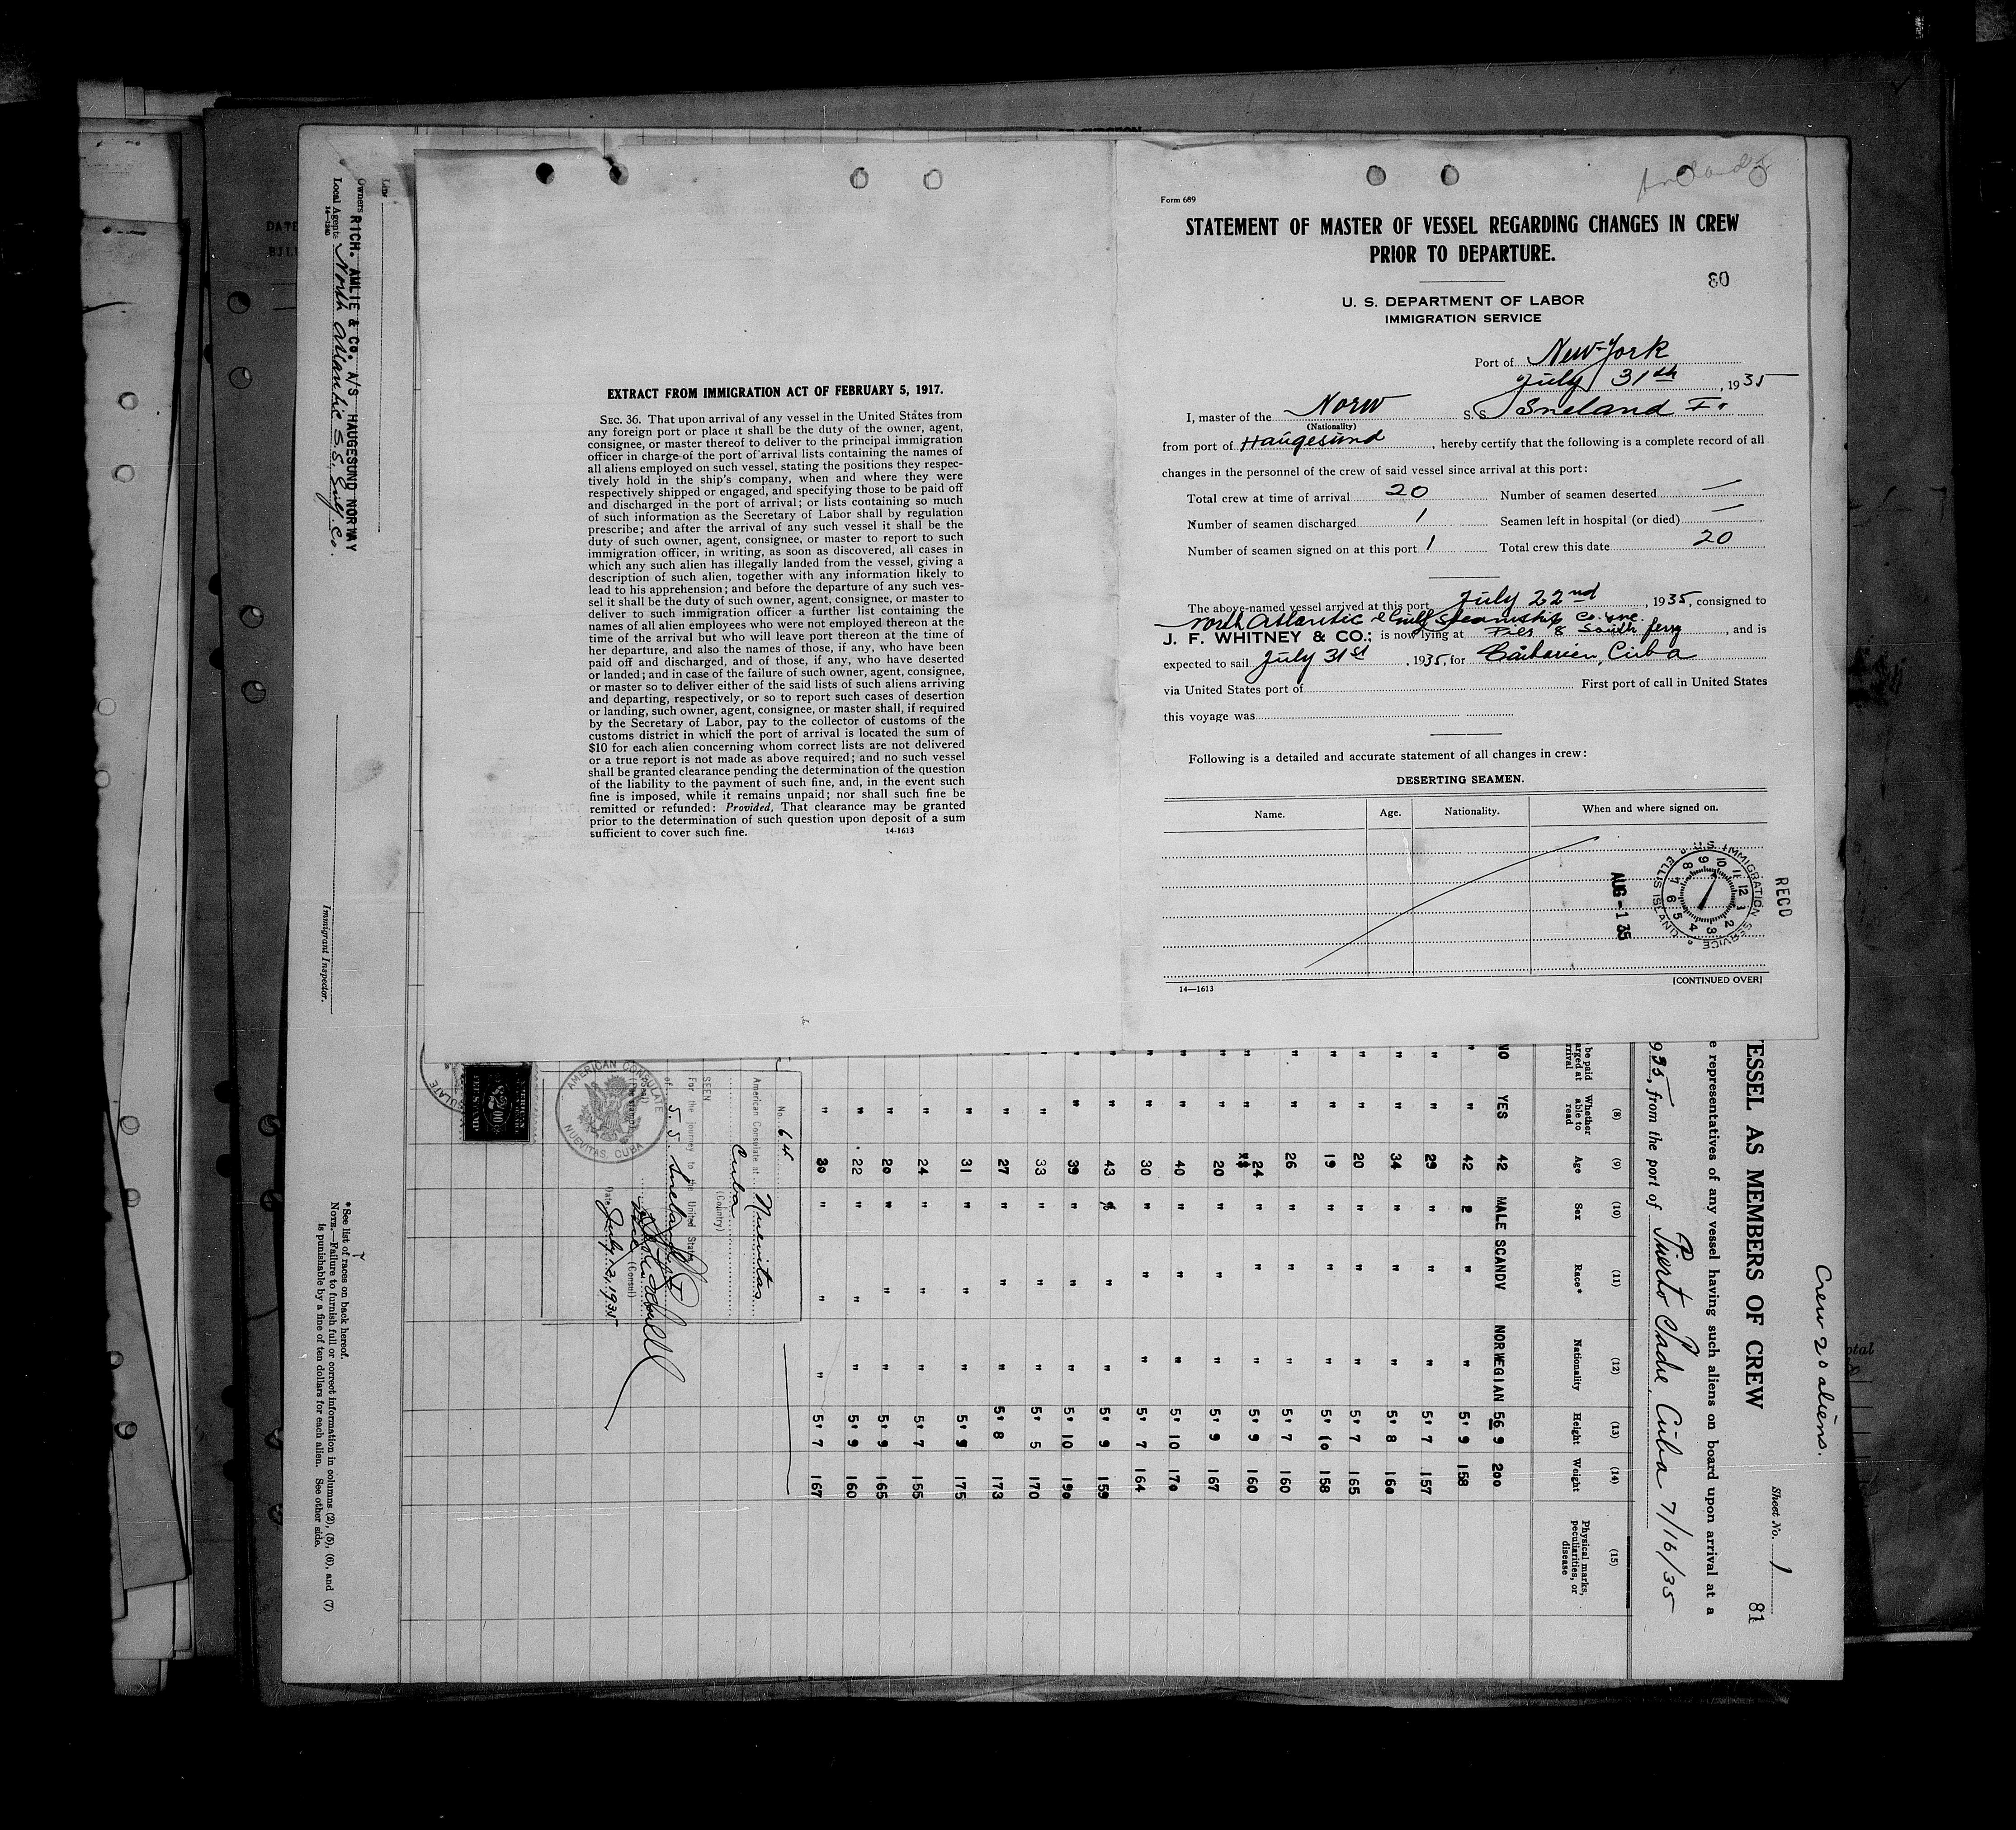 Form 689
STATEMENT OF MASTER OF VESSEL REGARDING CHANGES IN CREW
PRIOR TO DEPARTURE.
80
U. S. DEPARTMENT OF LABOR
IMMIGRATION SERVICE
Port of New-York
July 31th, 1935
I, master of the Norw S. S. Sneland I"
(Nationality)
from port of Haugesund, hereby certify that the following is a complete record of all
changes in the personnel of the crew of said vessel since arrival at this port:
Total crew at time of arrival 20 Number of seamen deserted —
Number of seamen discharged 1 Seamen left in hospital (or died) —
Number of seamen signed on at this port 1 Total crew this date 20
The above-named vessel arrived at this port July 22nd, 1935, consigned to
North Atlantic & Gulf Steamship Co. Inc.
J. F. WHITNEY & CO.; is now lying at Pier 8 South ferry, and is
expected to sail July 31st, 1935, for Caibarien, Cuba
via United States port of First port of call in United States
this voyage was
Following is a detailed and accurate statement of all changes in crew:
DESERTING SEAMEN.
Name. Age. Nationality. When and where signed on.
RECD
U.S. IMMIGRATION SERVICE ELLIS ISLAND
AUG -1 35
14—1613 [CONTINUED OVER]
EXTRACT FROM IMMIGRATION ACT OF FEBRUARY 5, 1917.
SEC. 36. That upon arrival of any vessel in the United States from
any foreign port or place it shall be the duty of the owner, agent,
consignee, or master thereof to deliver to the principal immigration
officer in charge of the port of arrival lists containing the names of
all aliens employed on such vessel, stating the positions they respec-
tively hold in the ship's company, when and where they were
respectively shipped or engaged, and specifying those to be paid off
and discharged in the port of arrival; or lists containing so much
of such information as the Secretary of Labor shall by regulation
prescribe; and after the arrival of any such vessel it shall be the
duty of such owner, agent, consignee, or master to report to such
immigration officer, in writing, as soon as discovered, all cases in
which any such alien has illegally landed from the vessel, giving a
description of such alien, together with any information likely to
lead to his apprehension; and before the departure of any such ves-
sel it shall be the duty of such owner, agent, consignee, or master to
deliver to such immigration officer a further list containing the
names of all alien employees who were not employed thereon at the
time of the arrival but who will leave port thereon at the time of
her departure, and also the names of those, if any, who have been
paid off and discharged, and of those, if any, who have deserted
or landed; and in case of the failure of such owner, agent, consignee,
or master so to deliver either of the said lists of such aliens arriving
and departing, respectively, or so to report such cases of desertion
or landing, such owner, agent, consignee, or master shall, if required
by the Secretary of Labor, pay to the collector of customs of the
customs district in which the port of arrival is located the sum of
$10 for each alien concerning whom correct lists are not delivered
or a true report is not made as above required; and no such vessel
shall be granted clearance pending the determination of the question
of the liability to the payment of such fine, and, in the event such
fine is imposed, while it remains unpaid; nor shall such fine be
remitted or refunded: Provided, That clearance may be granted
prior to the determination of such question upon deposit of a sum
sufficient to cover such fine. 14-1613
Crew 20 aliens.
Sheet No. 1
81
ESSEL AS MEMBERS OF CREW
e representatives of any vessel having such aliens on board upon arrival at a
935, from the port of Puerto Padre, Cuba 7/16/35
(8) (9) (10) (11) (12) (13) (14) (15)
be paid
arged at
rrival
Whether able to read Age Sex Race* Nationality Height Weight Physical marks, peculiarities, or disease
NO YES 42 MALE SCANDV NORWEGIAN 5 9 200
" " 42 " " " 5' 9 158
" " 29 " " " 5' 7 157
" " 34 " " " 5' 8 160
" " 20 " " " 5' 7 165
" " 19 " " " 5' 10 158
" " 26 " " " 5' 7 160
" " 24 " " " 5' 9 160
" " 20 " " " 5' 9 167
" " 40 " " " 5' 10 170
" " 30 " " " 5' 7 164
" " 43 " " " 5' 9 159
" " 39 " " " 5' 10 190
" " 33 " " " 5' 5 170
" " 27 " " " 5' 8 173
" " 31 " " " 5' 9 175
" " 24 " " " 5' 7 155
" " 20 " " " 5' 9 165
" " 22 " " " 5' 9 160
" " 30 " " " 5' 7 167
No. 64
American Consulate at Nuevitas
Cuba
(Country)
SEEN
For the journey to the United States
of S.S. Sneland I
(Consul)
Date July 12, 1935
AMERICAN CONSULATE
NUEVITAS, CUBA
AMERICAN
$2.00
FEE STAMP
Line
Owners RICH. AMLIE & CO. A/S HAUGESUND NORWAY
Local Agents North Atlantic S.S. Gulf Co.
14—1240
Immigrant Inspector.
* See list of races on back hereof.
NOTE.—Failure to furnish full or correct information in columns (2), (5), (6), and (7)
is punishable by a fine of ten dollars for each alien. See other side.
DATE
BILL
otal